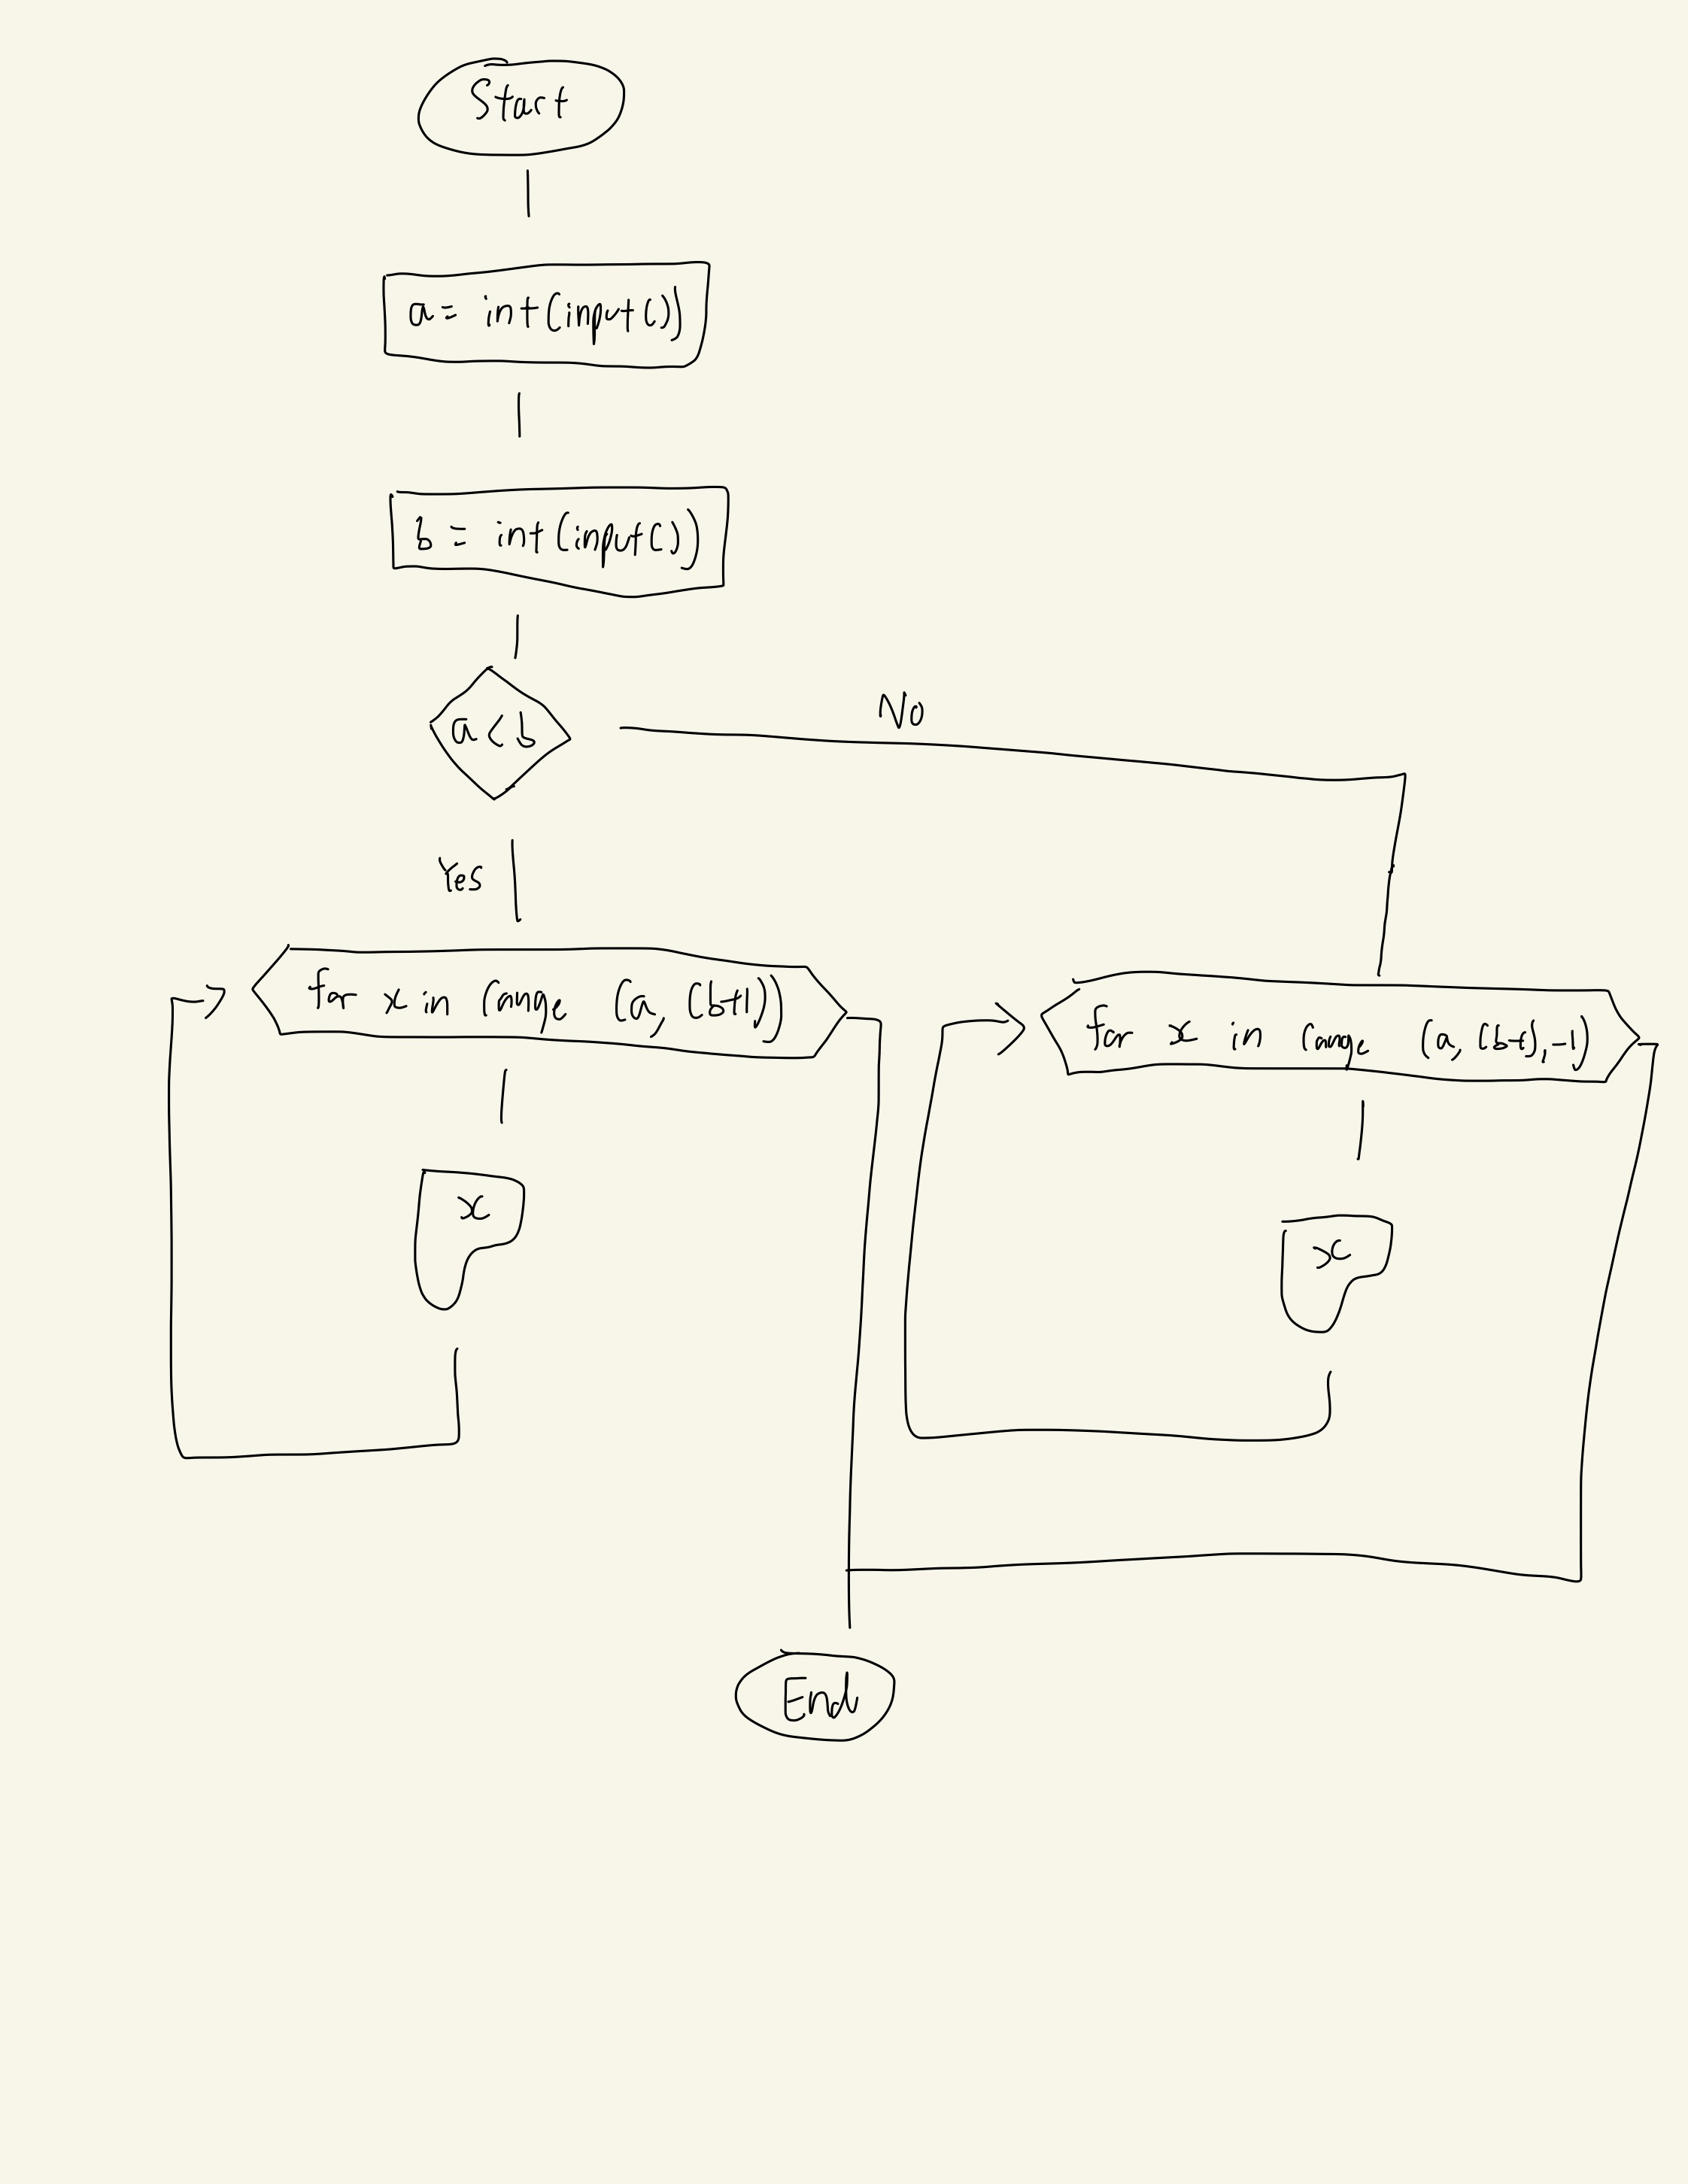 Start
a = int(input())
b = int(input())
a < b
No
Yes
for x in range (a, (b+1))
for x in range (a, (b-1), -1)
x
x
End